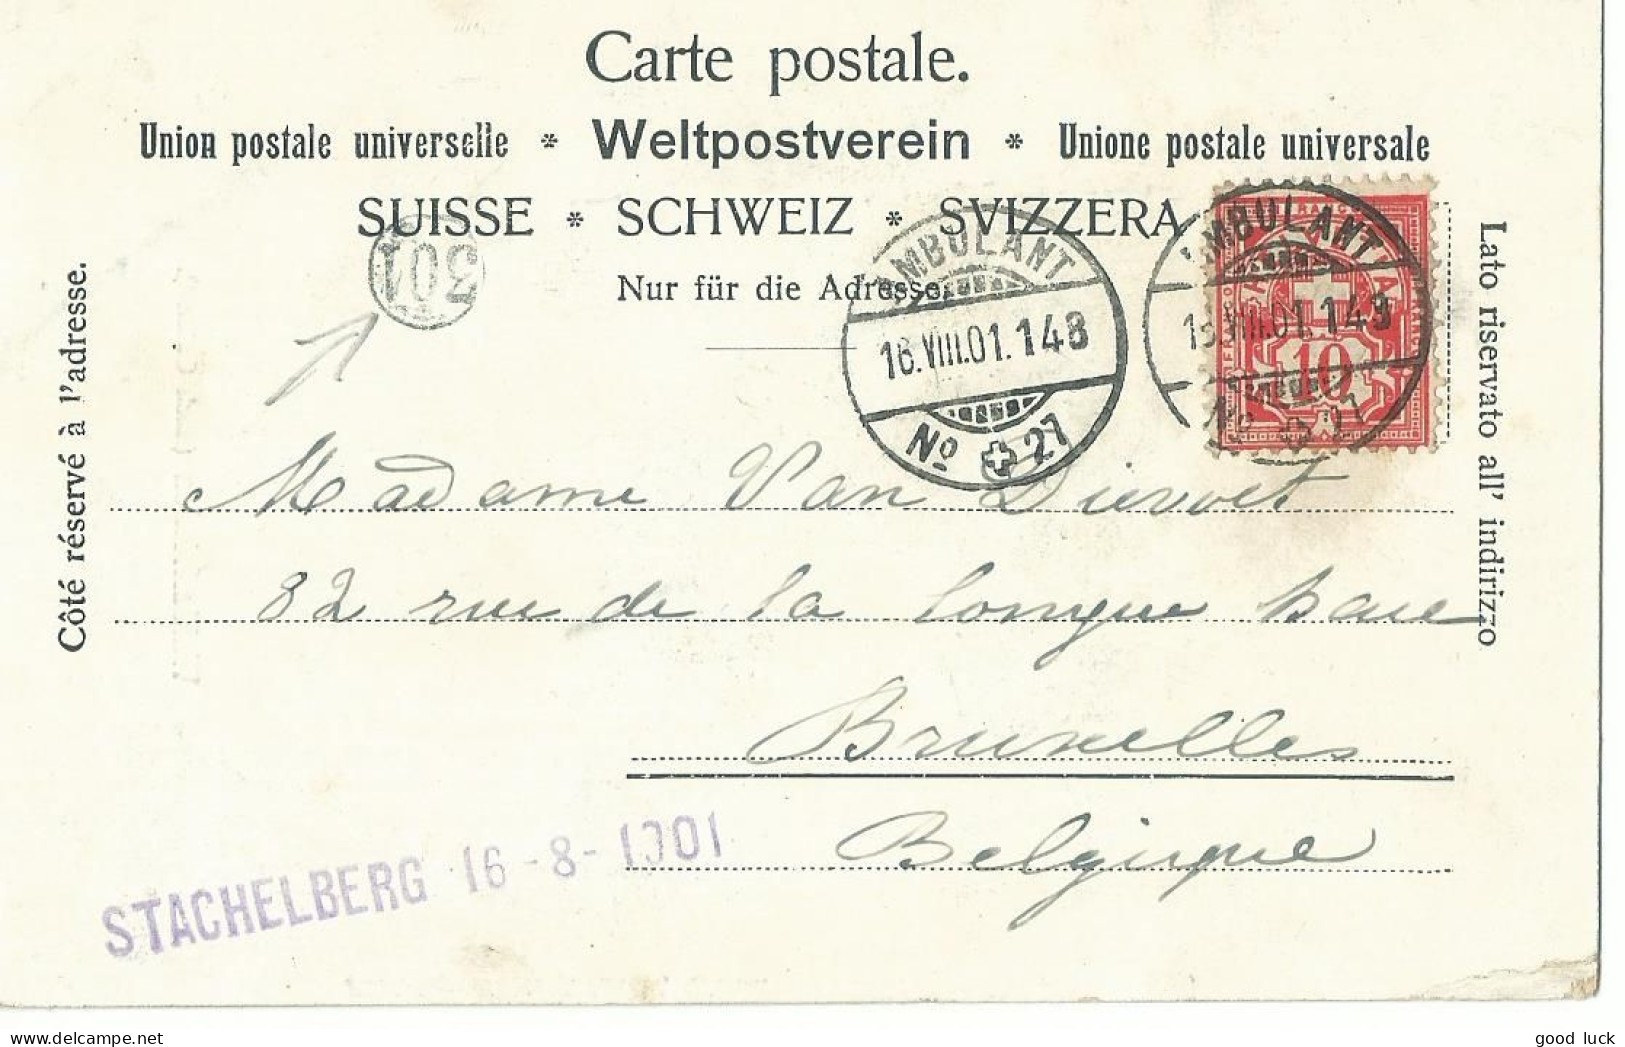 Carte postale.
Union postale universelle * Weltpostverein * Unione postale universale
SUISSE * SCHWEIZ * SVIZZERA
Nur für die Adresse.
301
AMBULANT
16.VIII.01.148
No 27
AMBULANT
VIII.01.148
No 27
10
Côté réservé à l'adresse.
Lato riservato all' indirizzo
Madame Van Dievoet
82 rue de la longue haie
Bruxelles
Belgique
STACHELBERG 16-8-1901
www.delcampe.net
good_luck